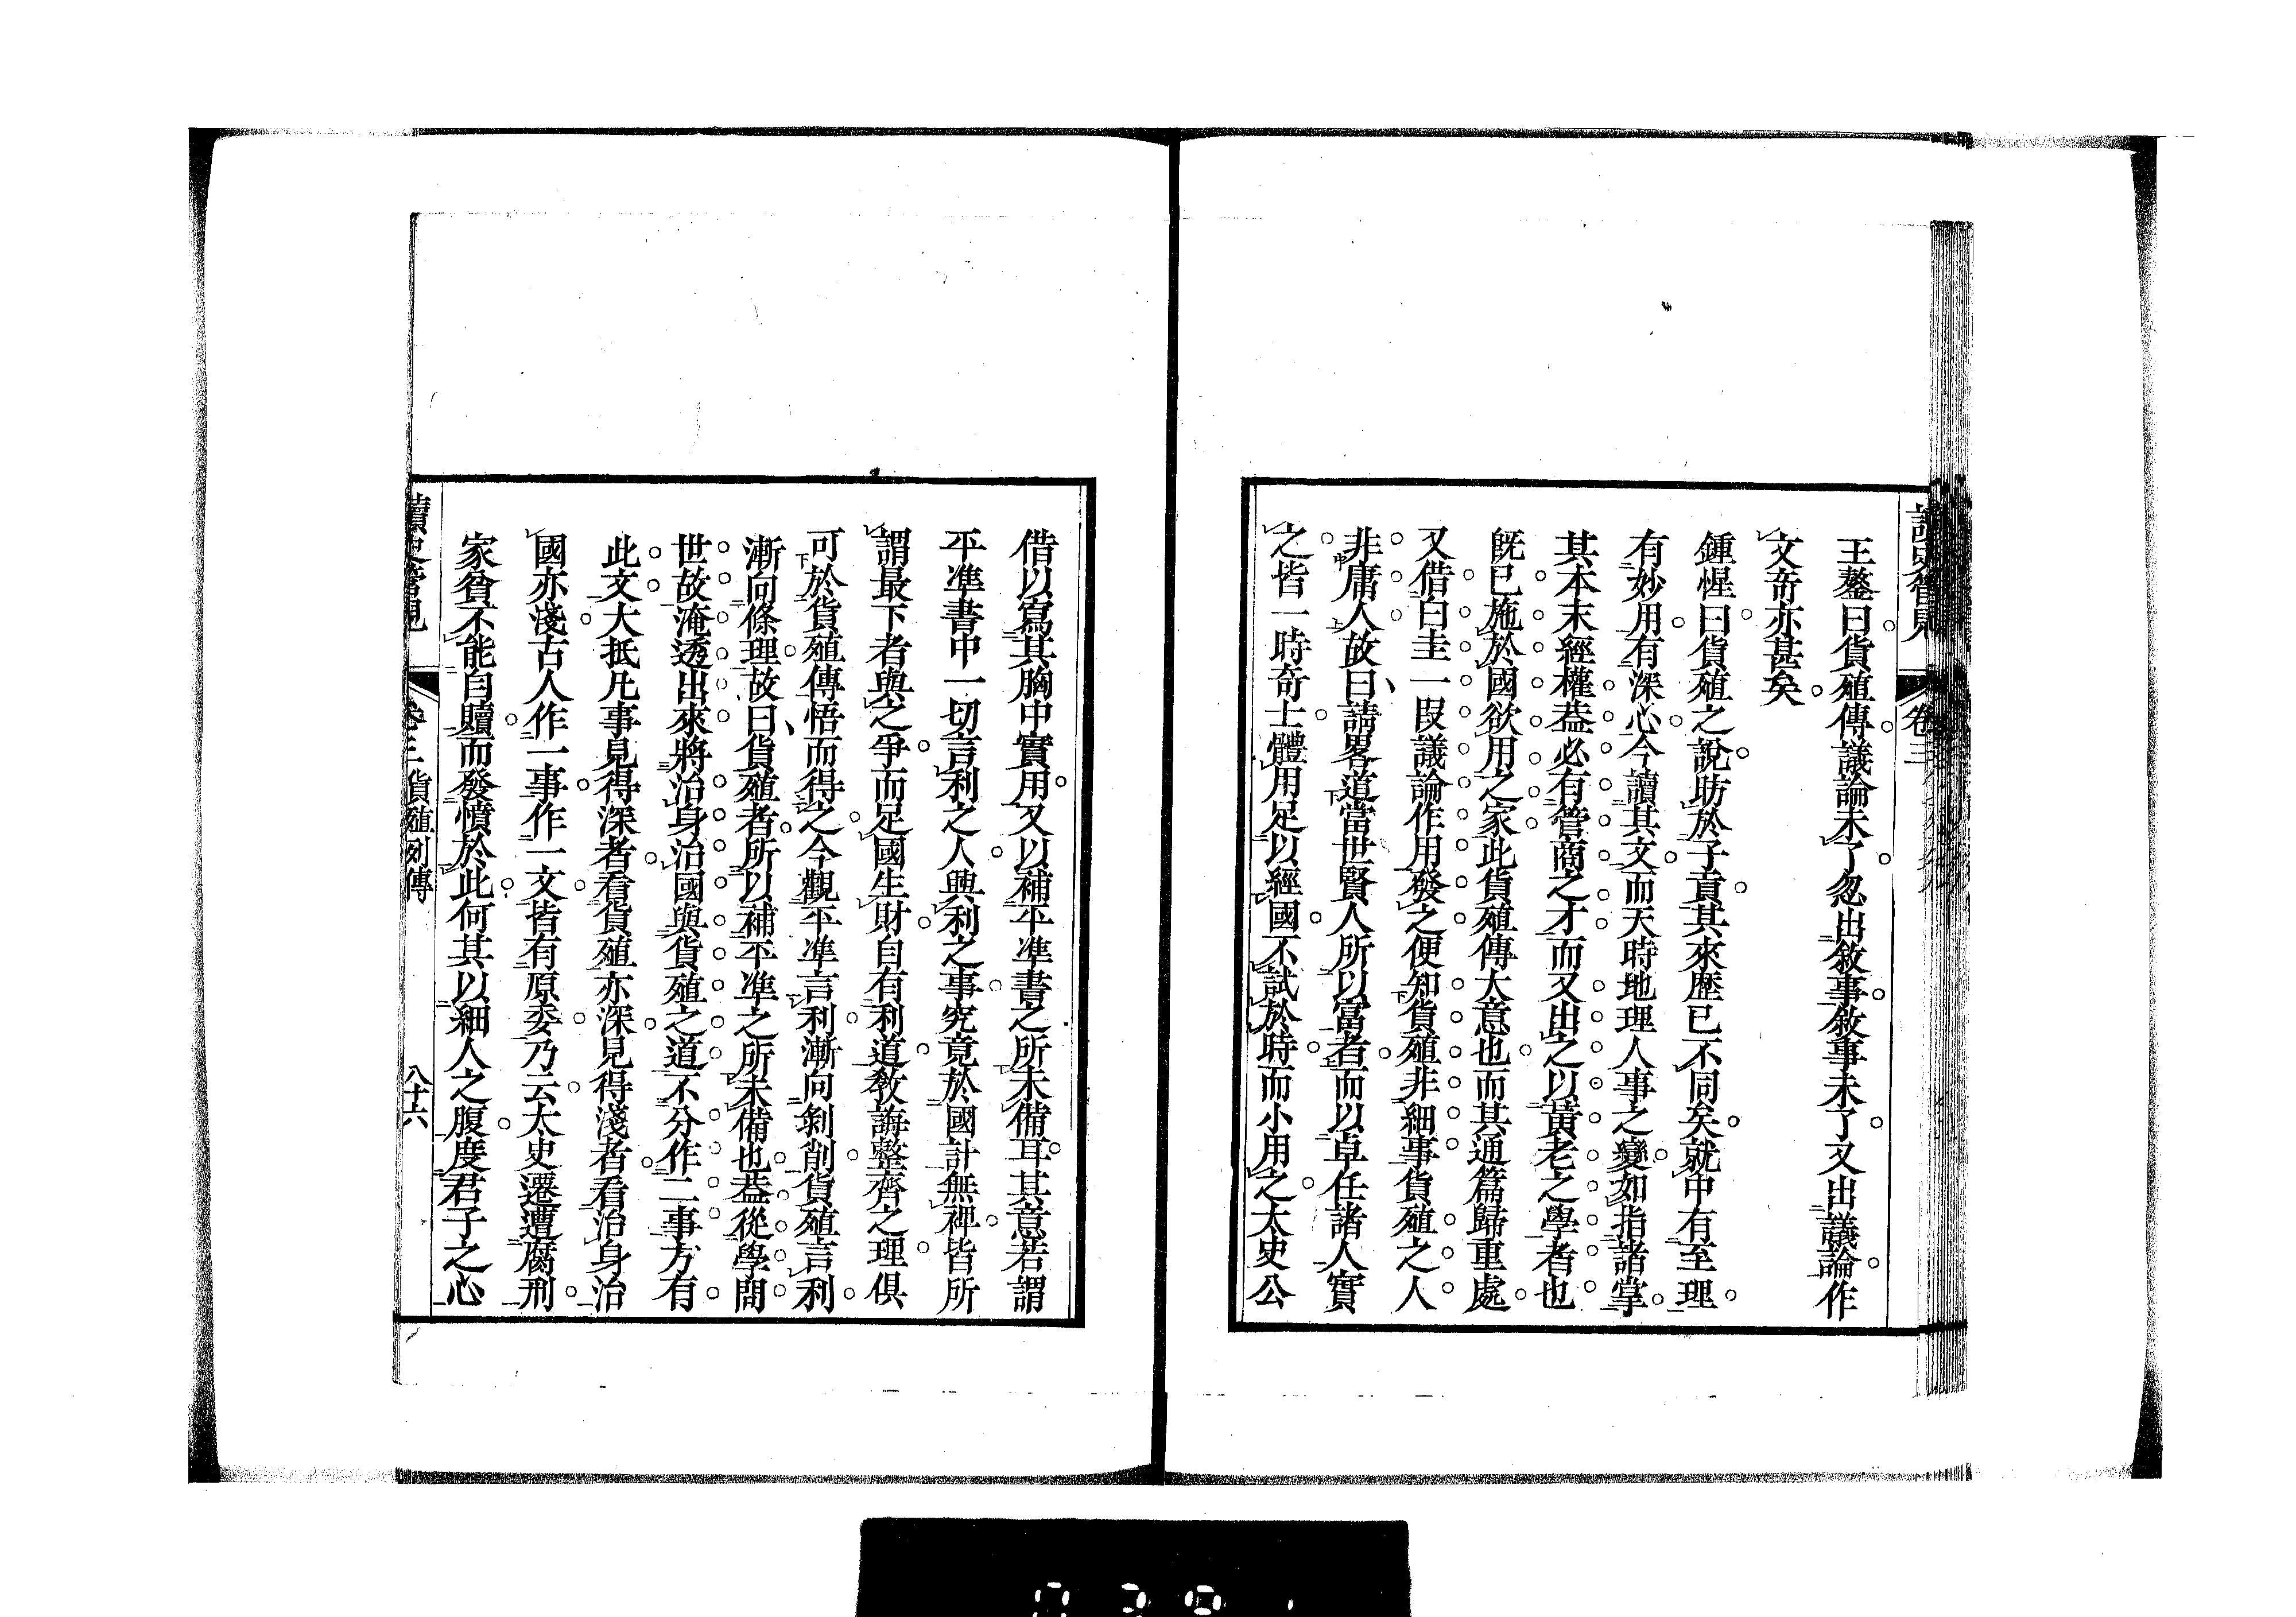 讀史管見
卷三
王鏊曰貨殖傳議論未了忽出敘事敘事未了又出議論作
文奇亦甚矣
鍾惺曰貨殖之說昉於子貢其來歷已不同矣就中有至理
有妙用有深心今讀其文而天時地理人事之變如指諸掌
其本末經權葢必有管商之才而又出之以黃老之學者也
旣已施於國欲用之家此貨殖傳大意也而其通篇歸重處
又借白圭一段議論作用發之便知貨殖非細事貨殖之人
非庸人故曰請畧道當世賢人所以富者而以卓任諸人實
之皆一時奇士體用足以經國不試於時而小用之太史公
借以寫其胸中實用又以補平準書之所未備耳其意若謂
平準書中一切言利之人興利之事究竟於國計無裨皆所
謂最下者與之爭而足國生財自有利道敎誨整齊之理俱
可於貨殖傳悟而得之今觀平準言利漸向剝削貨殖言利
漸向條理故曰貨殖者所以補平準之所未備也葢從學問
世故淹透出來將治身治國與貨殖之道不分作二事方有
此文大抵凡事見得深者看貨殖亦深見得淺者看治身治
國亦淺古人作一事作一文皆有原委乃云太史遷遭腐刑
家貧不能自贖而發憤於此何其以細人之腹度君子之心
讀史管見
卷三 貨殖列傳
八十六